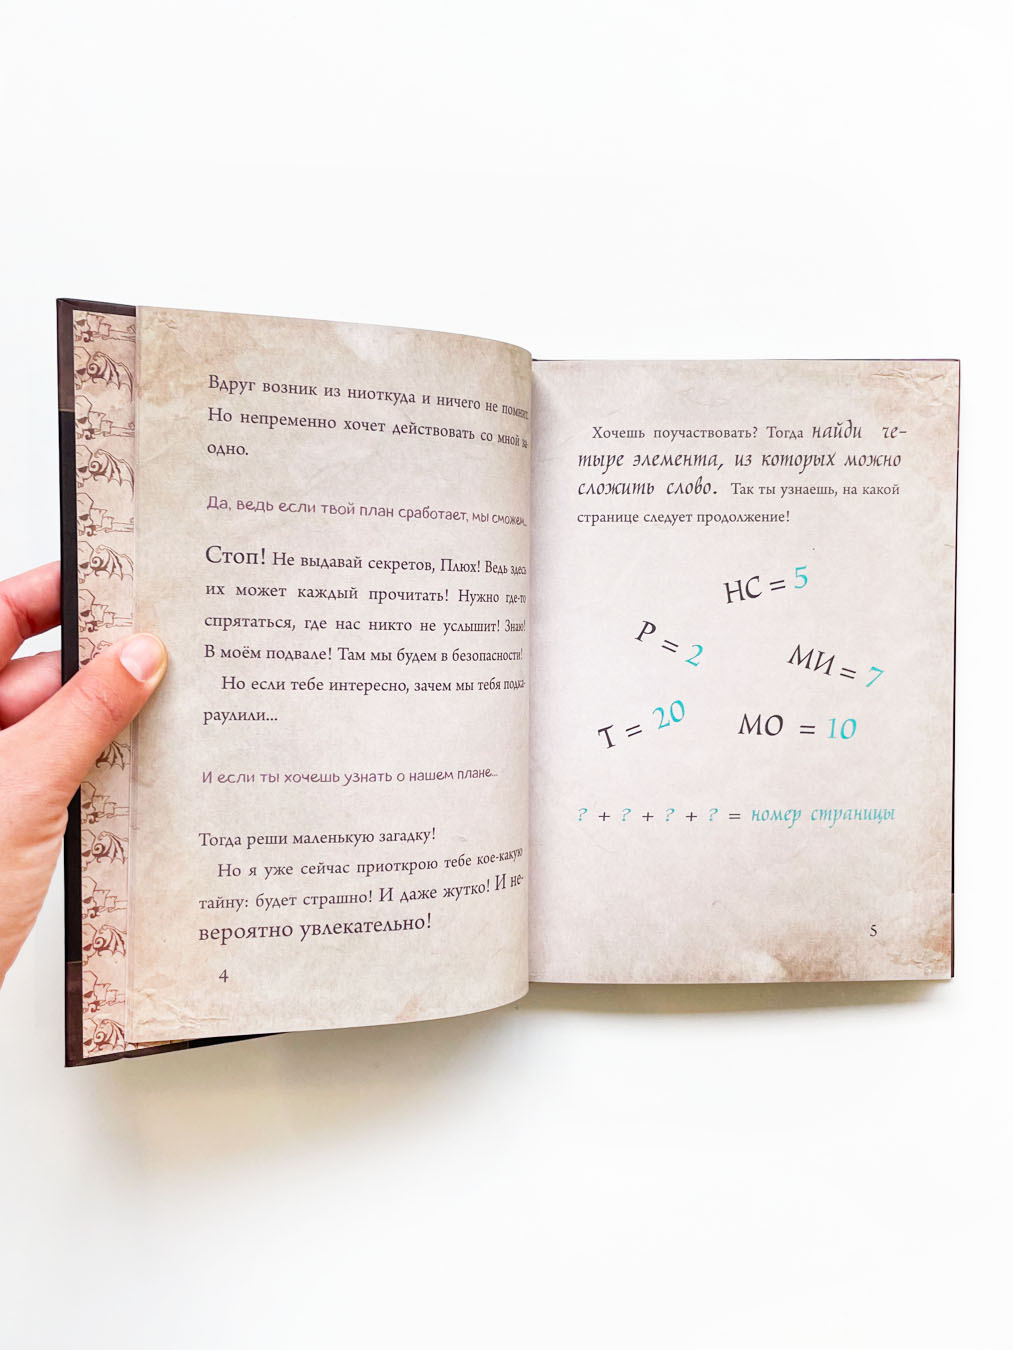 Вдруг возник из ниоткуда и ничего не помнит.
Но непременно хочет действовать со мной за-
одно.
Да, ведь если твой план сработает, мы сможем...
Стоп! Не выдавай секретов, Плюх! Ведь здесь
их может каждый прочитать! Нужно где-то
спрятаться, где нас никто не услышит! Знаю!
В моём подвале! Там мы будем в безопасности!
Но если тебе интересно, зачем мы тебя подка-
раулили...
И если ты хочешь узнать о нашем плане...
Тогда реши маленькую загадку!
Но я уже сейчас приоткрою тебе кое-какую
тайну: будет страшно! И даже жутко! И не-
вероятно увлекательно!
4
Хочешь поучаствовать? Тогда найди че-
тыре элемента, из которых можно
сложить слово. Так ты узнаешь, на какой
странице следует продолжение!
НС = 5
Р = 2
МИ = 7
Т = 20
МО = 10
? + ? + ? + ? = номер страницы
5